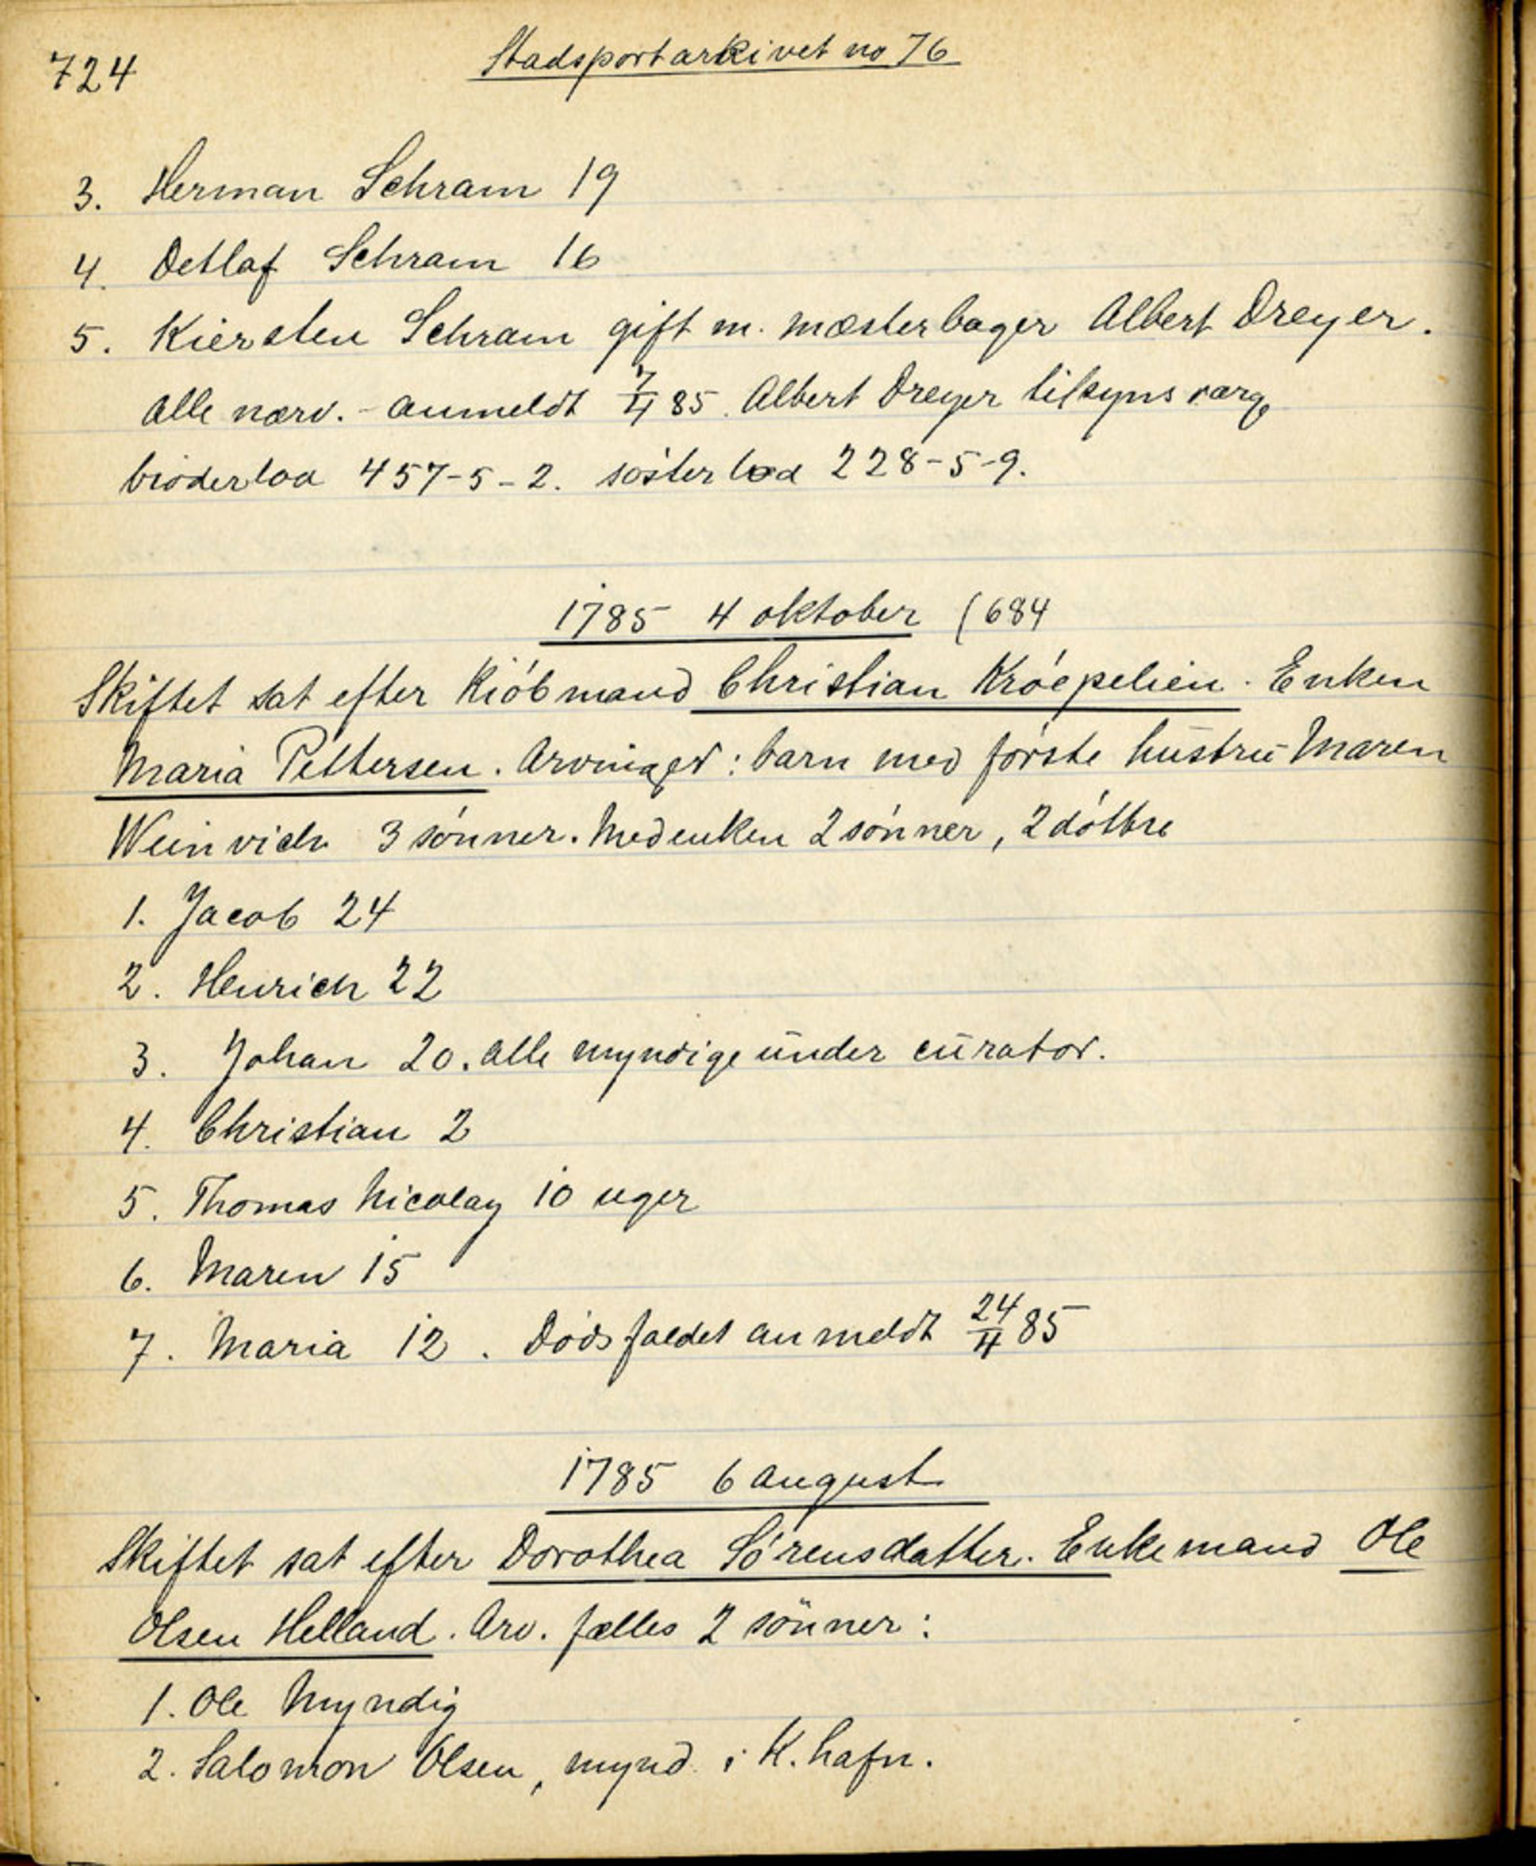 724
Stadsportarkivet no 76
3. Herman Schram 19
4. Detlaf Schram 16
5. Kiersten Schram gift m. mæsterbager Albert Dreyer.
Alle nærv. - anmeldt 7/4 85. Albert Dreyer tilsynsværge
broderlod 457-5-2. søsterlod 228-5-9.
1785 4 oktober (684
Skiftet sat efter Kiöbmand Christian Kröepelien. Enken
Maria Pettersen. Arvinger: barn med første hustru Maren
Weinvich 3 sønner. Med enken 2 sønner, 2 døttre
1. Jacob 24
2. Henrich 22
3. Johan 20. alle myndige under curator.
4. Christian 2
5. Thomas Nicolay 10 uger
6. Maren 15
7. Maria 12. Dødsfaldet anmeldt 24/4 85
1785 6 august
Skiftet sat efter Dorothea Sørensdatter. Enkemand Ole
Olsen Helland. Arv. fælles 2 sönner:
1. Ole Myndig
2. Salomon Olsen, mynd. i K.hafn.